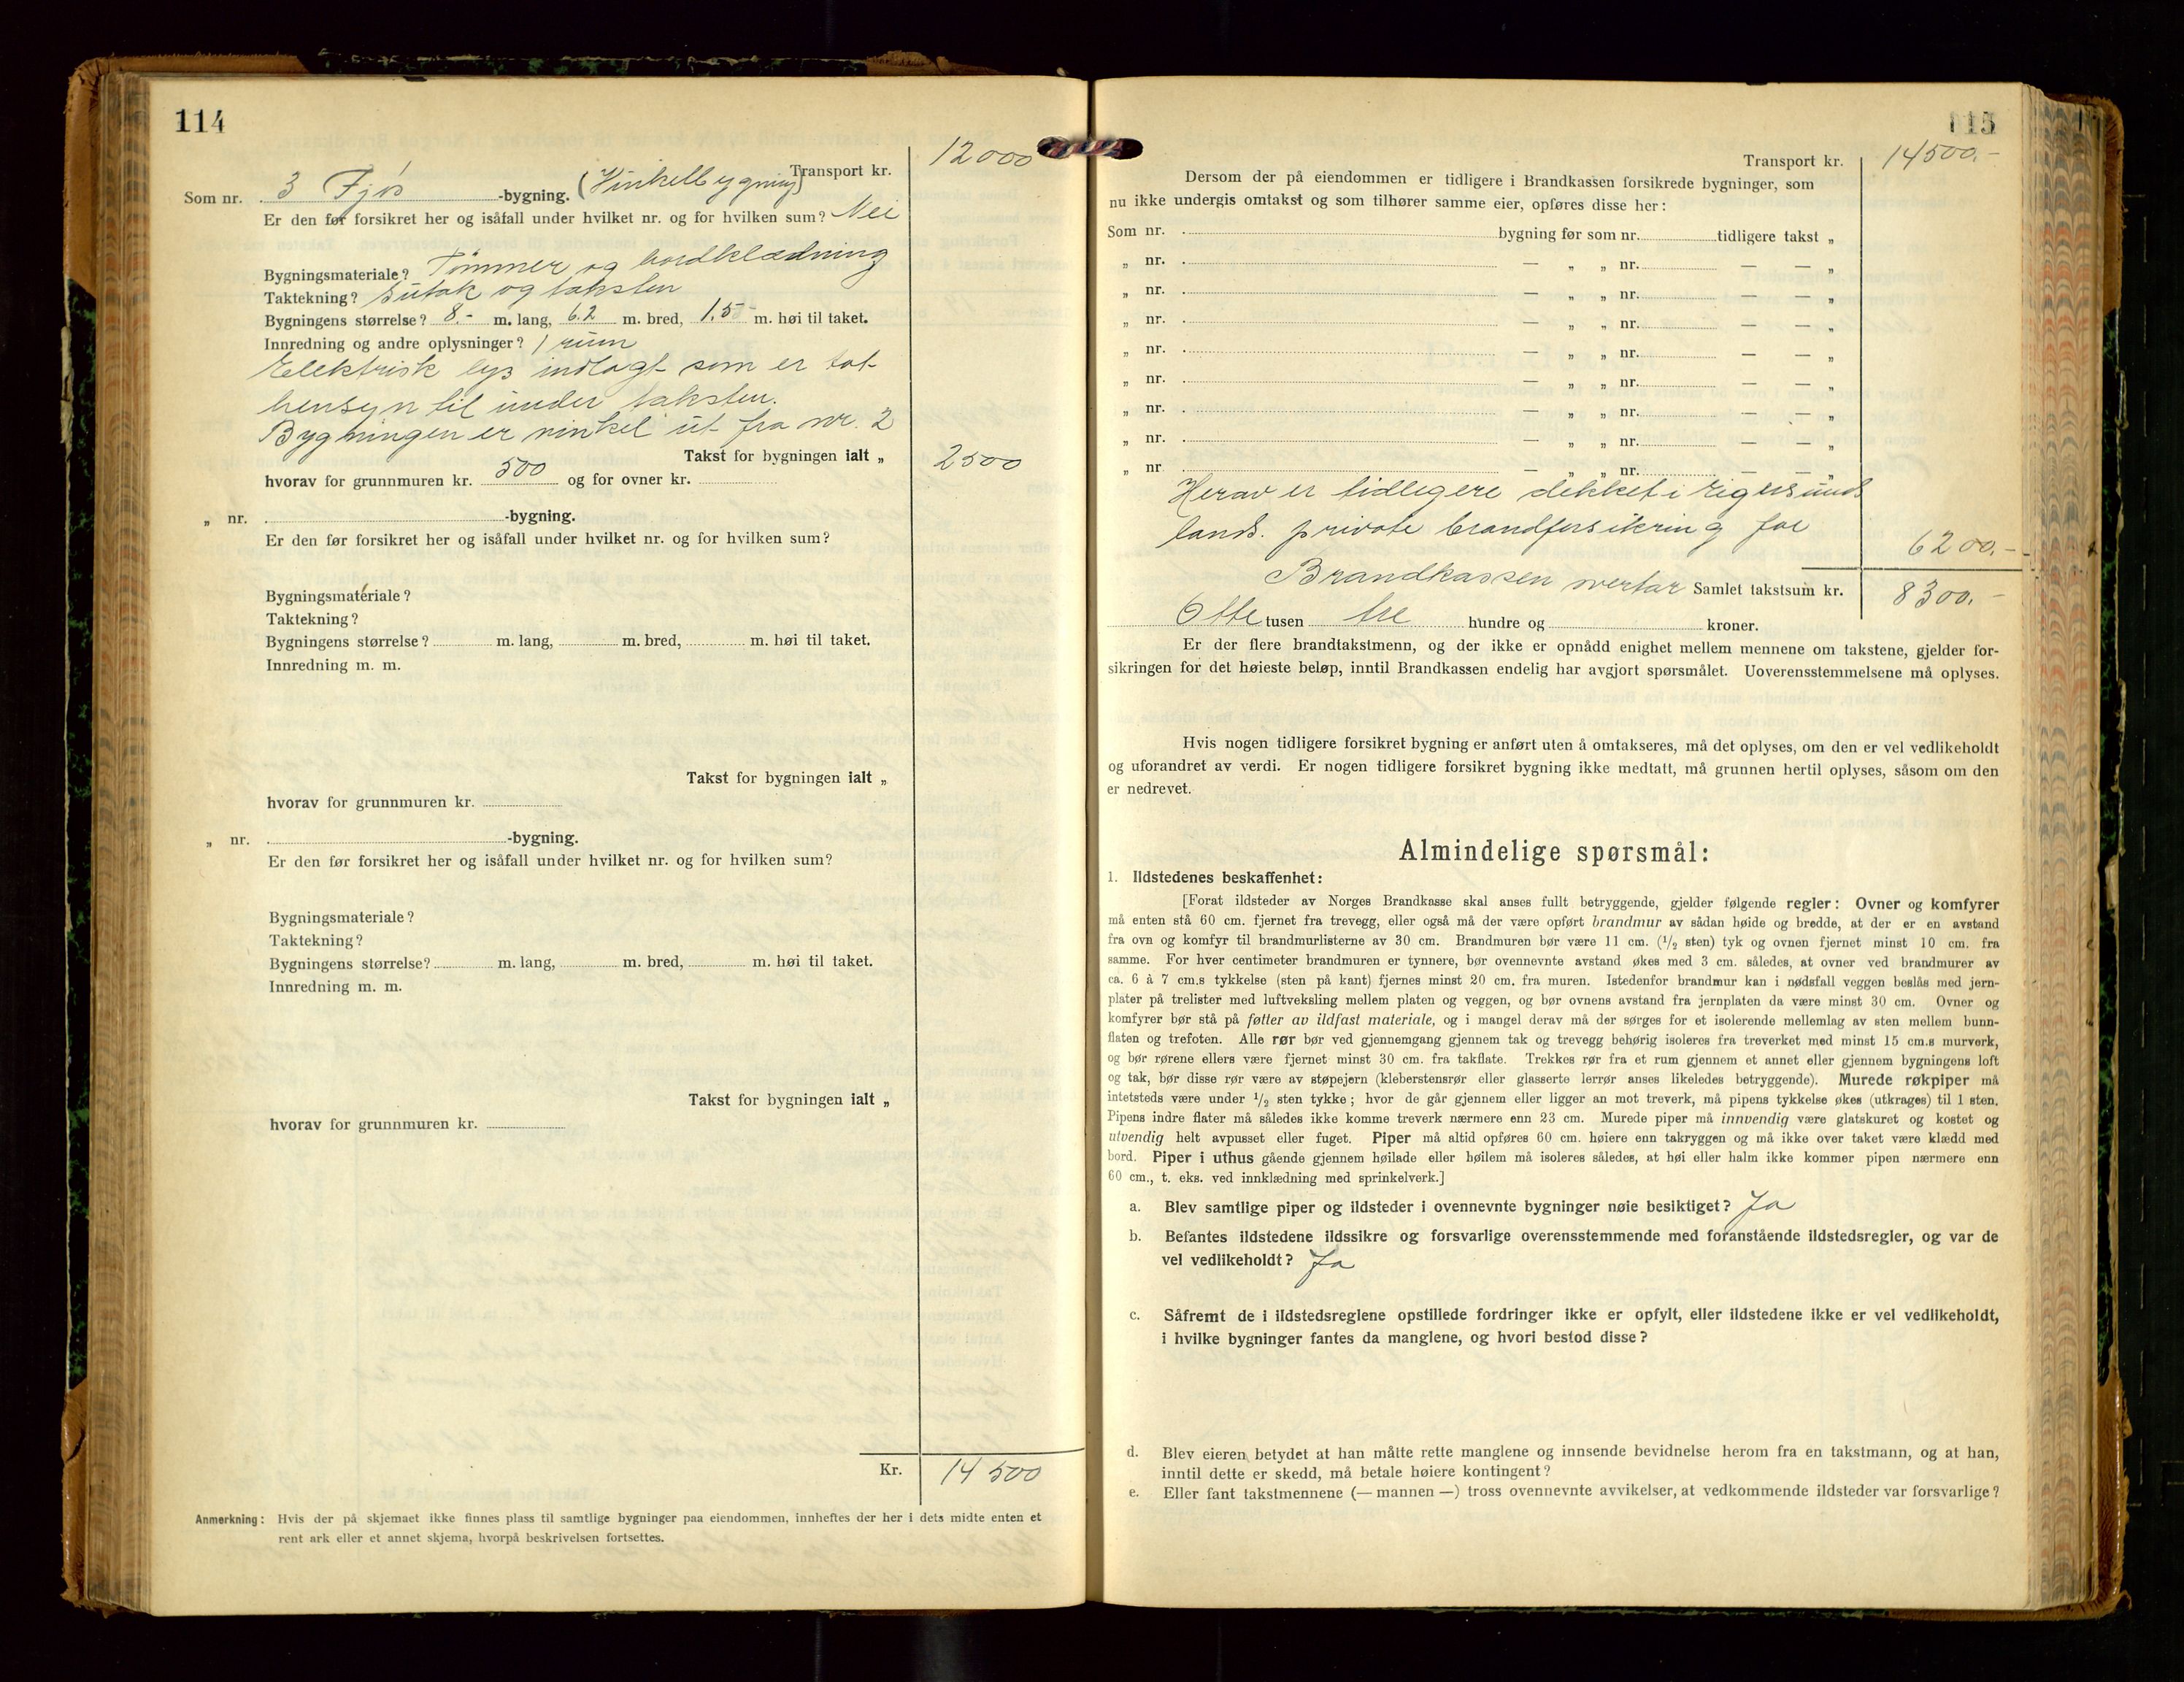 114
Transport kr. 12000
Som nr. 3 Fjøs -bygning. (Vinkelbygning)
Er den før forsikret her og isåfall under hvilket nr. og for hvilken sum? Nei
Bygningsmateriale? Tømmer og bordklædning
Taktekning? Sutak og taksten
Bygningens størrelse? 8.- m. lang, 6.2 m. bred, 1.5 m. høi til taket.
Innredning og andre oplysninger? 1 rum
Elektrisk lys indlagt som er tat
hensyn til under taksten.
Bygningen er vinkel ut fra nr. 2
Takst for bygningen ialt „ 2500
hvorav for grunnmuren kr. 500 og for ovner kr.
„ nr. -bygning.
Er den før forsikret her og isåfall under hvilket nr. og for hvilken sum?
Bygningsmateriale?
Taktekning?
Bygningens størrelse? m. lang, m. bred, m. høi til taket.
Innredning m. m.
Takst for bygningen ialt „
hvorav for grunnmuren kr.
„ nr. -bygning.
Er den før forsikret her og isåfall under hvilket nr. og for hvilken sum?
Bygningsmateriale?
Taktekning?
Bygningens størrelse? m. lang, m. bred, m. høi til taket.
Innredning m. m.
Takst for bygningen ialt „
hvorav for grunnmuren kr.
Kr. 14500
Anmerkning: Hvis der på skjemaet ikke finnes plass til samtlige bygninger paa eiendommen, innheftes der her i dets midte enten et
rent ark eller et annet skjema, hvorpå beskrivelsen fortsettes.
115
Transport kr. 14500.-
Dersom der på eiendommen er tidligere i Brandkassen forsikrede bygninger, som
nu ikke undergis omtakst og som tilhører samme eier, opføres disse her:
Som nr. bygning før som nr. tidligere takst „
„ nr. — „ „ nr. — — „
„ nr. — „ „ nr. — — „
„ nr. — „ „ nr. — — „
„ nr. — „ „ nr. — — „
„ nr. — „ „ nr. — — „
„ nr. — „ „ nr. — — „
„ nr. — „ „ nr. — — „
„ nr. — „ „ nr. — — „
Herav er tidligere dekket i Eigersunds
lands. private brandforsikring for 6200.-
Brandkassen overtar Samlet takstsum kr. 8300.-
Otte tusen tre hundre og kroner.
Er der flere brandtakstmenn, og der ikke er opnådd enighet mellem mennene om takstene, gjelder for-
sikringen for det høieste beløp, inntil Brandkassen endelig har avgjort spørsmålet. Uoverensstemmelsene må oplyses.
Hvis nogen tidligere forsikret bygning er anført uten å omtakseres, må det oplyses, om den er vel vedlikeholdt
og uforandret av verdi. Er nogen tidligere forsikret bygning ikke medtatt, må grunnen hertil oplyses, såsom om den
er nedrevet.
Almindelige spørsmål:
1. Ildstedenes beskaffenhet:
[Forat ildsteder av Norges Brandkasse skal anses fullt betryggende, gjelder følgende regler: Ovner og komfyrer
må enten stå 60 cm. fjernet fra trevegg, eller også må der være opført brandmur av sådan høide og bredde, at der er en avstand
fra ovn og komfyr til brandmurlisterne av 30 cm. Brandmuren bør være 11 cm. (1/2 sten) tyk og ovnen fjernet minst 10 cm. fra
samme. For hver centimeter brandmuren er tynnere, bør ovennevnte avstand økes med 3 cm. således, at ovner ved brandmurer av
ca. 6 à 7 cm.s tykkelse (sten på kant) fjernes minst 20 cm. fra muren. Istedenfor brandmur kan i nødsfall veggen beslås med jern-
plater på trelister med luftveksling mellem platen og veggen, og bør ovnens avstand fra jernplaten da være minst 30 cm. Ovner og
komfyrer bør stå på føtter av ildfast materiale, og i mangel derav må der sørges for et isolerende mellemlag av sten mellem bunn-
flaten og trefoten. Alle rør bør ved gjennemgang gjennem tak og trevegg behørig isoleres fra treverket med minst 15 cm.s murverk,
og bør rørene ellers være fjernet minst 30 cm. fra takflate. Trekkes rør fra et rum gjennem et annet eller gjennem bygningens loft
og tak, bør disse rør være av støpejern (kleberstensrør eller glasserte lerrør anses likeledes betryggende). Murede røkpiper må
intetsteds være under 1/2 sten tykke; hvor de går gjennem eller ligger an mot treverk, må pipens tykkelse økes (utkrages) til 1 sten.
Pipens indre flater må således ikke komme treverk nærmere enn 23 cm. Murede piper må innvendig være glatskuret og kostet og
utvendig helt avpusset eller fuget. Piper må altid opføres 60 cm. høiere enn takryggen og må ikke over taket være klædd med
bord. Piper i uthus gående gjennem høilade eller høilem må isoleres således, at høi eller halm ikke kommer pipen nærmere enn
60 cm., t. eks. ved innklædning med sprinkelverk.]
a. Blev samtlige piper og ildsteder i ovennevnte bygninger nøie besiktiget? Ja
b. Befantes ildstedene ildssikre og forsvarlige overensstemmende med foranstående ildstedsregler, og var de
vel vedlikeholdt? Ja
c. Såfremt de i ildstedsreglene opstillede fordringer ikke er opfylt, eller ildstedene ikke er vel vedlikeholdt,
i hvilke bygninger fantes da manglene, og hvori bestod disse?
d. Blev eieren betydet at han måtte rette manglene og innsende bevidnelse herom fra en takstmann, og at han,
inntil dette er skedd, må betale høiere kontingent?
e. Eller fant takstmennene (— mannen —) tross ovennevnte avvikelser, at vedkommende ildsteder var forsvarlige?